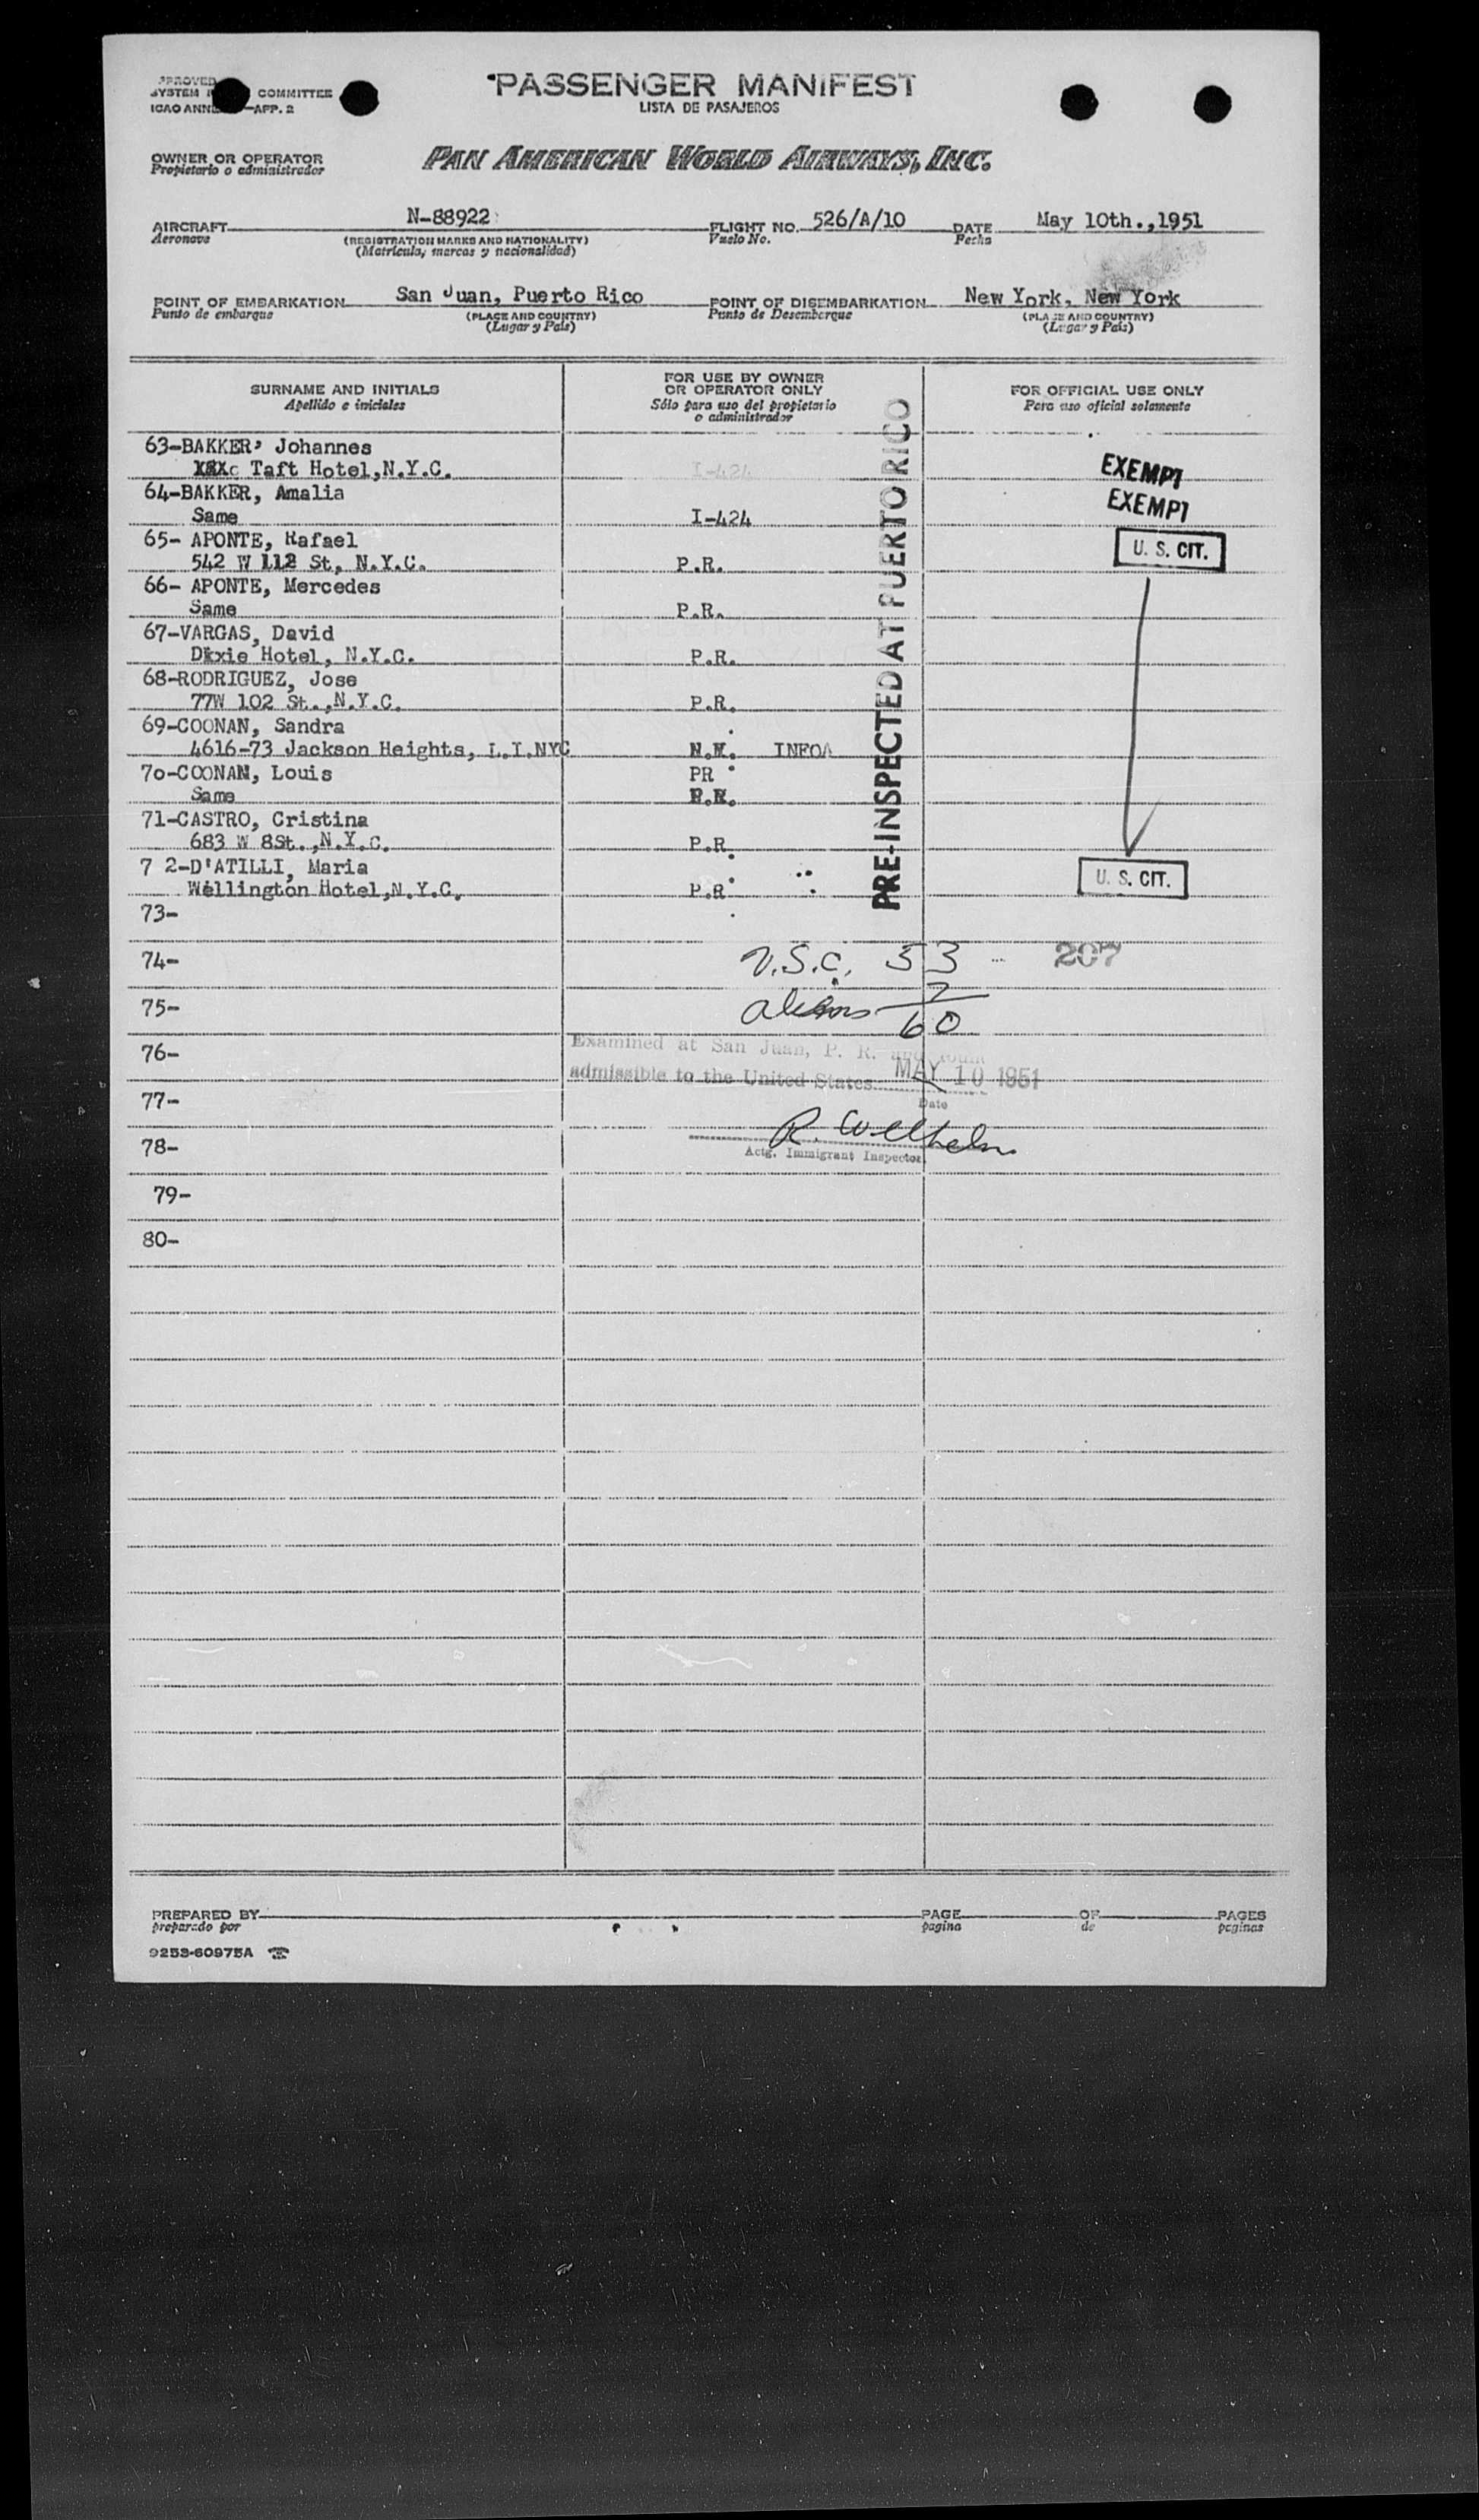 APPROVED
SYSTEM COMMITTEE
ICAO ANNEX —APP. 2
PASSENGER MANIFEST
LISTA DE PASAJEROS
OWNER OR OPERATOR
Propietario o administrador
PAN AMERICAN WORLD AIRWAYS, INC.
AIRCRAFT N-88922 FLIGHT NO. 526/A/10 DATE May 10th.,1951
Aeronave (REGISTRATION MARKS AND NATIONALITY) Vuelo No. Fecha
(Matrícula, marcas y nacionalidad)
POINT OF EMBARKATION San Juan, Puerto Rico POINT OF DISEMBARKATION New York, New York
Punto de embarque (PLACE AND COUNTRY) Punto de Desembarque (PLACE AND COUNTRY)
(Lugar y País) (Lugar y País)
SURNAME AND INITIALS
Apellido e iniciales
FOR USE BY OWNER
OR OPERATOR ONLY
Sólo para uso del propietario
o administrador
FOR OFFICIAL USE ONLY
Para uso oficial solamente
PRE-INSPECTED AT PUERTO RICO
63-BAKKER, Johannes
Taft Hotel,N.Y.C. I-424 EXEMPT
64-BAKKER, Amalia EXEMPT
Same I-424
65- APONTE, Rafael U. S. CIT.
542 W 112 St, N.Y.C. P.R.
66- APONTE, Mercedes
Same P.R.
67-VARGAS, David
Dixie Hotel, N.Y.C. P.R.
68-RODRIGUEZ, Jose
77W 102 St.,N.Y.C. P.R.
69-COONAN, Sandra
4616-73 Jackson Heights, L.I.NYC N.Y. INFOA
70-COONAN, Louis PR
Same
71-CASTRO, Cristina
683 W 8St.,N.Y.C. P.R.
7 2-D'ATILLI, Maria U. S. CIT.
Wellington Hotel,N.Y.C. P.R
73-
74- U.S.C. 53 207
75- aliens 7
60
76- Examined at San Juan, P. R. and found
admissible to the United States MAY 10 1951
77- Date
R. Wilhelm
78- Actg. Immigrant Inspector
79-
80-
PREPARED BY PAGE OF PAGES
preparado por pagina de paginas
9253-60975A